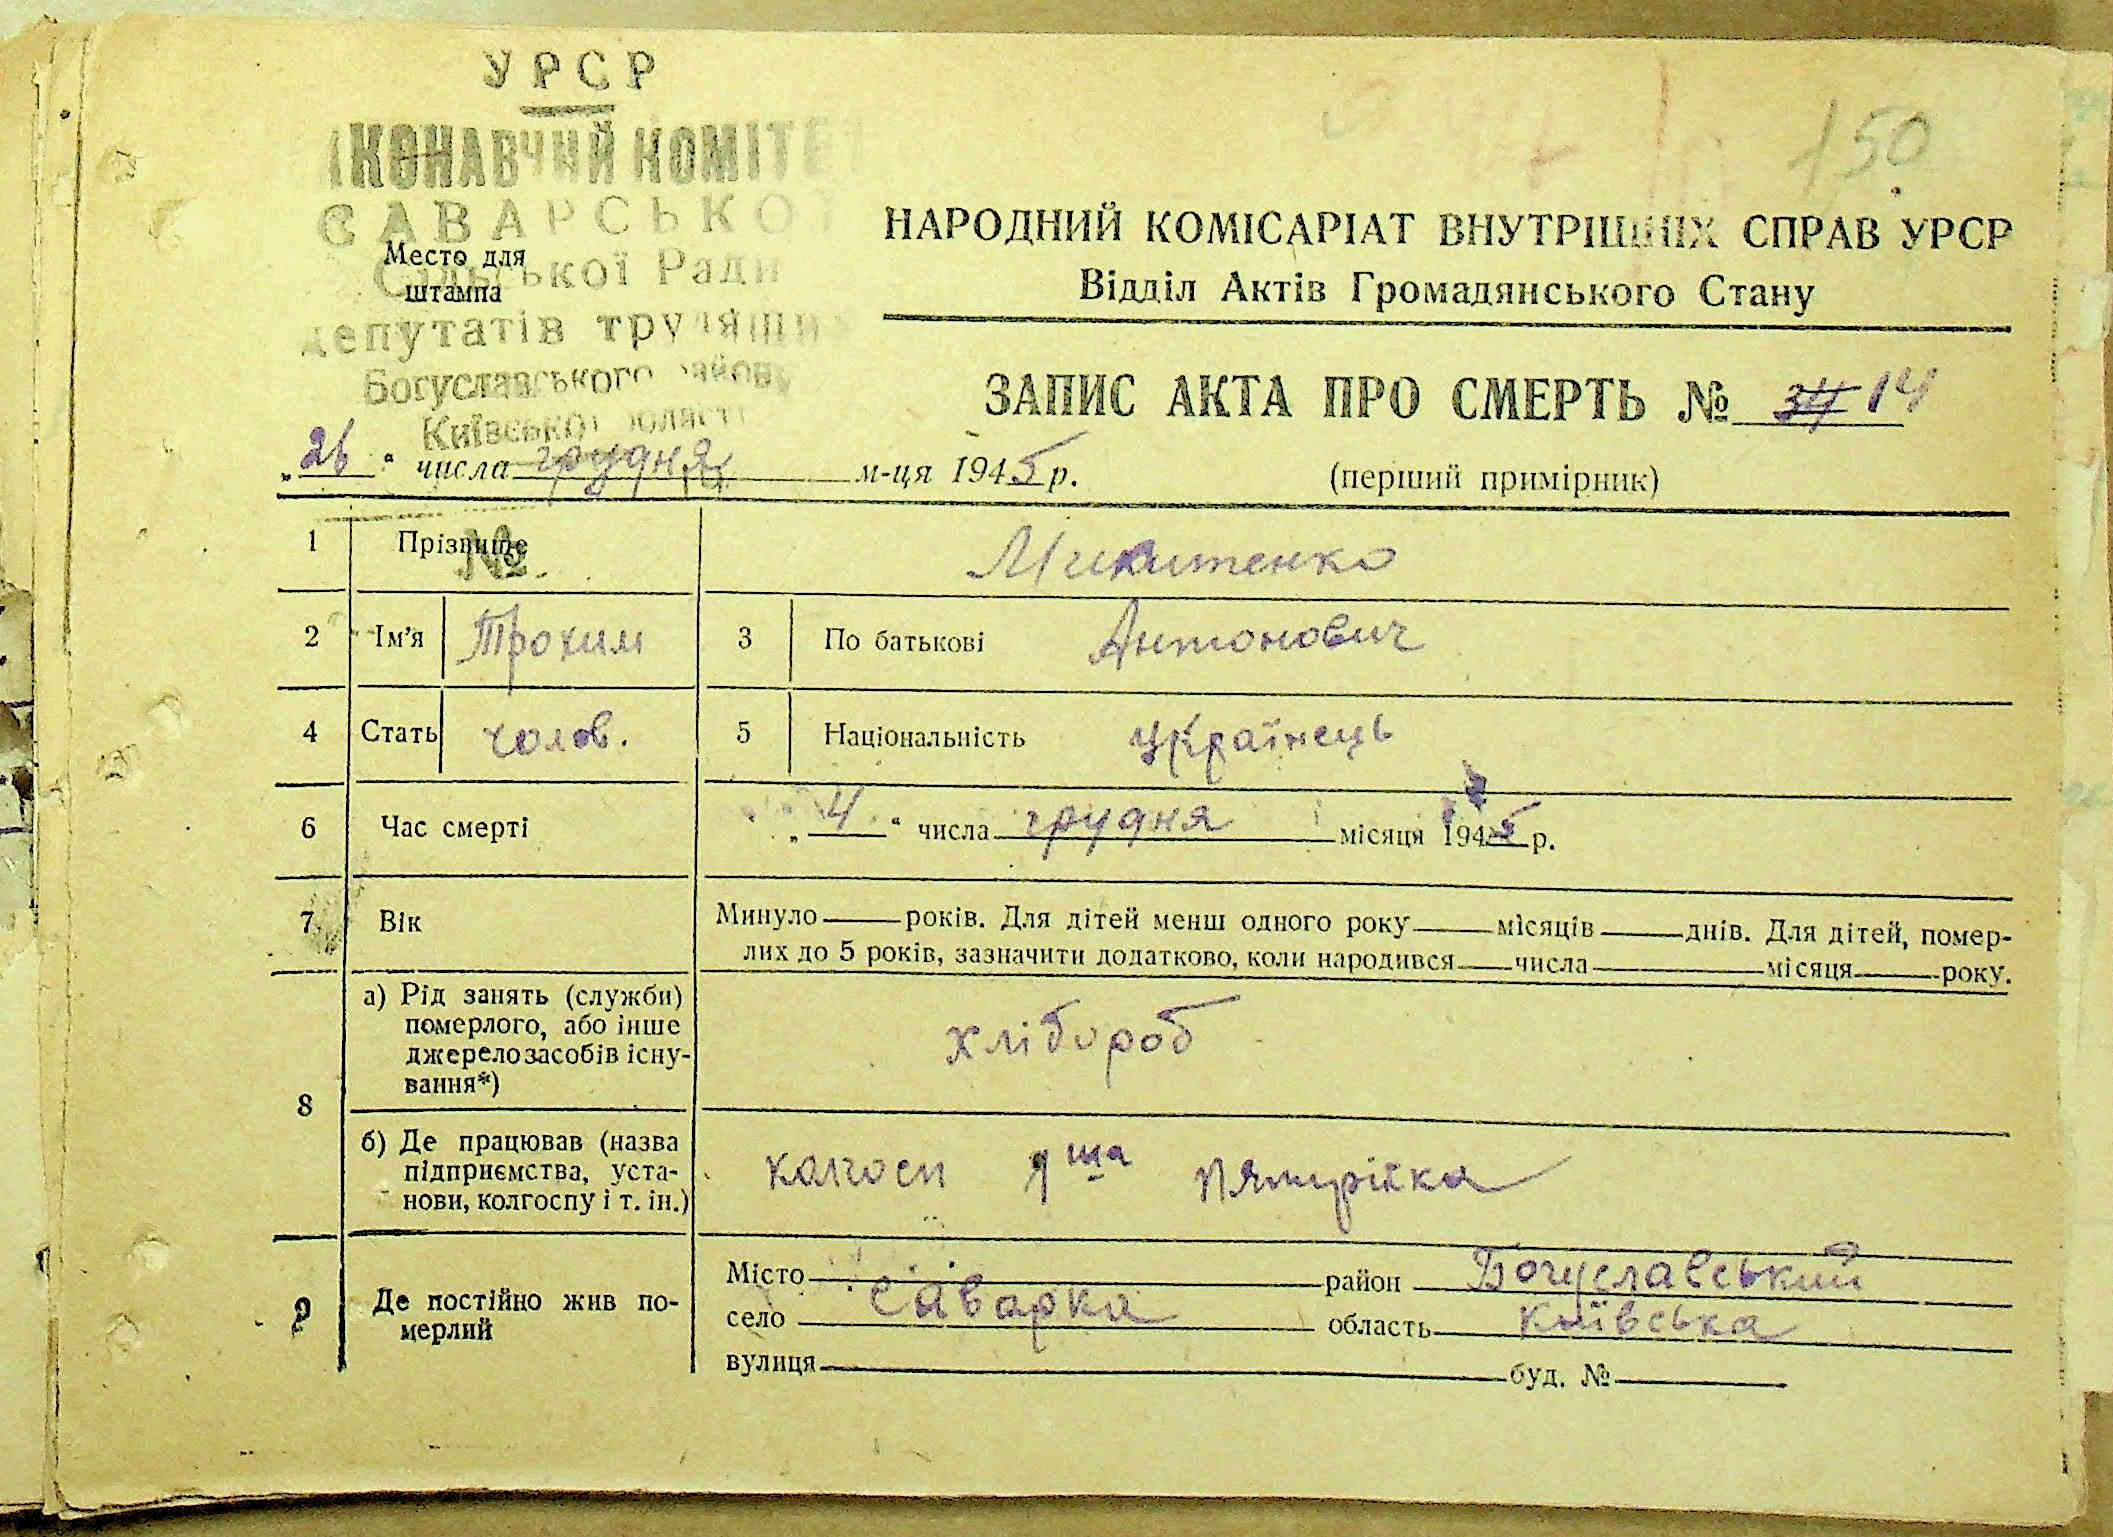 150
УРСР
ИКОНАВЧИЙ КОМІТЕ
САВАРСЬКОЇ
Сільської Ради
депутатів трудящих
Богуславського району
Київської області
№
Место для
штампа
НАРОДНИЙ КОМІСАРІАТ ВНУТРІШНІХ СПРАВ УРСР
Відділ Актів Громадянського Стану
ЗАПИС АКТА ПРО СМЕРТЬ № 34 14
„26“ числа грудня м-ця 1945 р.
(перший примірник)
1 Прізвище Микитенко
2 Ім'я Трохим 3 По батькові Антонович
4 Стать чолов. 5 Національність українець
6 Час смерті „4“ числа грудня місяця 1945 р.
7 Вік Минуло років. Для дітей менш одного року місяців днів. Для дітей, помер-
лих до 5 років, зазначити додатково, коли народився числа місяця року.
8 а) Рід занять (служби)
померлого, або інше
джерело засобів існу-
вання*)
хлібороб
б) Де працював (назва
підприємства, уста-
нови, колгоспу і т. ін.)
колгосп 1ша пятирікка
9 Де постійно жив по-
мерлий
Місто район Богуславський
село Саварка область Київська
вулиця буд. №